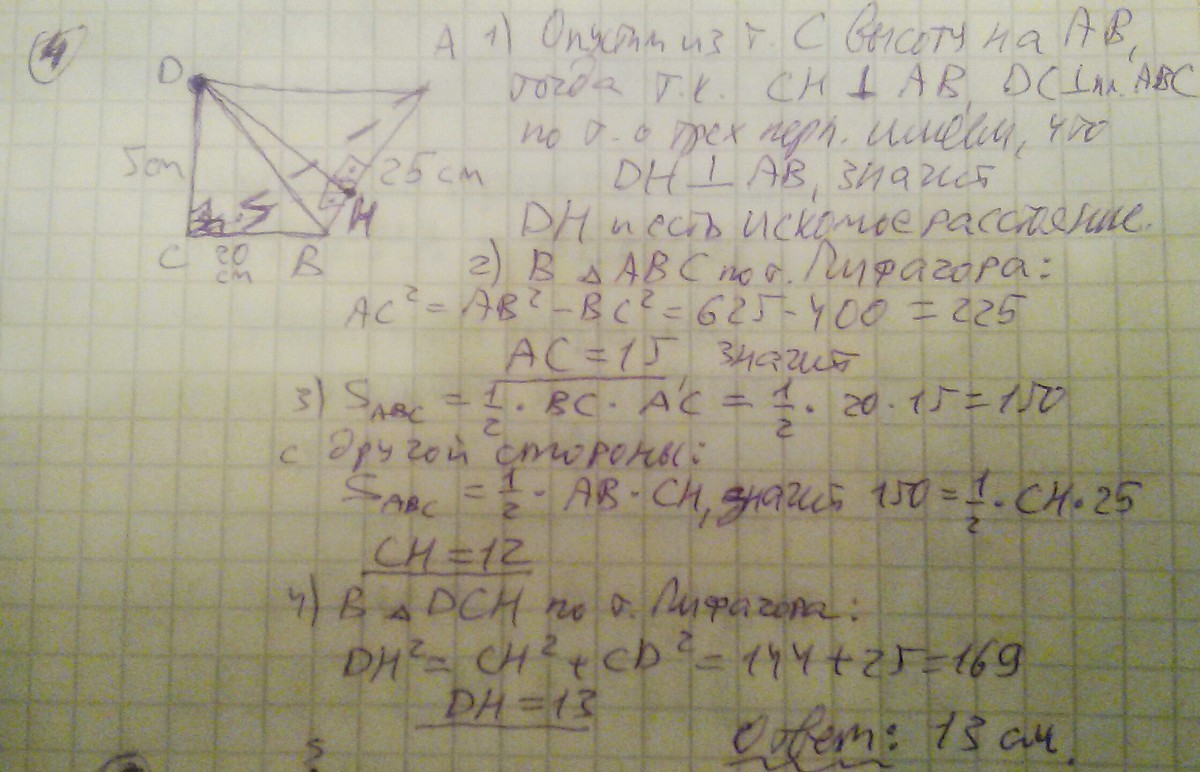 4
A
D
5 cm
25 cm
H
C
20
cm
B
1) Опустим из т. C высоту на AB,
тогда т.к. CH ⊥ AB, DC ⊥ пл. ABC
по т. о трех перп. имеем, что
DH ⊥ AB, значит
DH и есть искомое расстояние.
2) В △ ABC по т. Пифагора:
AC² = AB² - BC² = 625 - 400 = 225
AC = 15, значит
3) S_ABC = 1/2 · BC · AC = 1/2 · 20 · 15 = 150
с другой стороны:
S_ABC = 1/2 · AB · CH, значит 150 = 1/2 · CH · 25
CH = 12
4) В △ DCH по т. Пифагора:
DH² = CH² + CD² = 144 + 25 = 169
DH = 13
Ответ: 13 см.